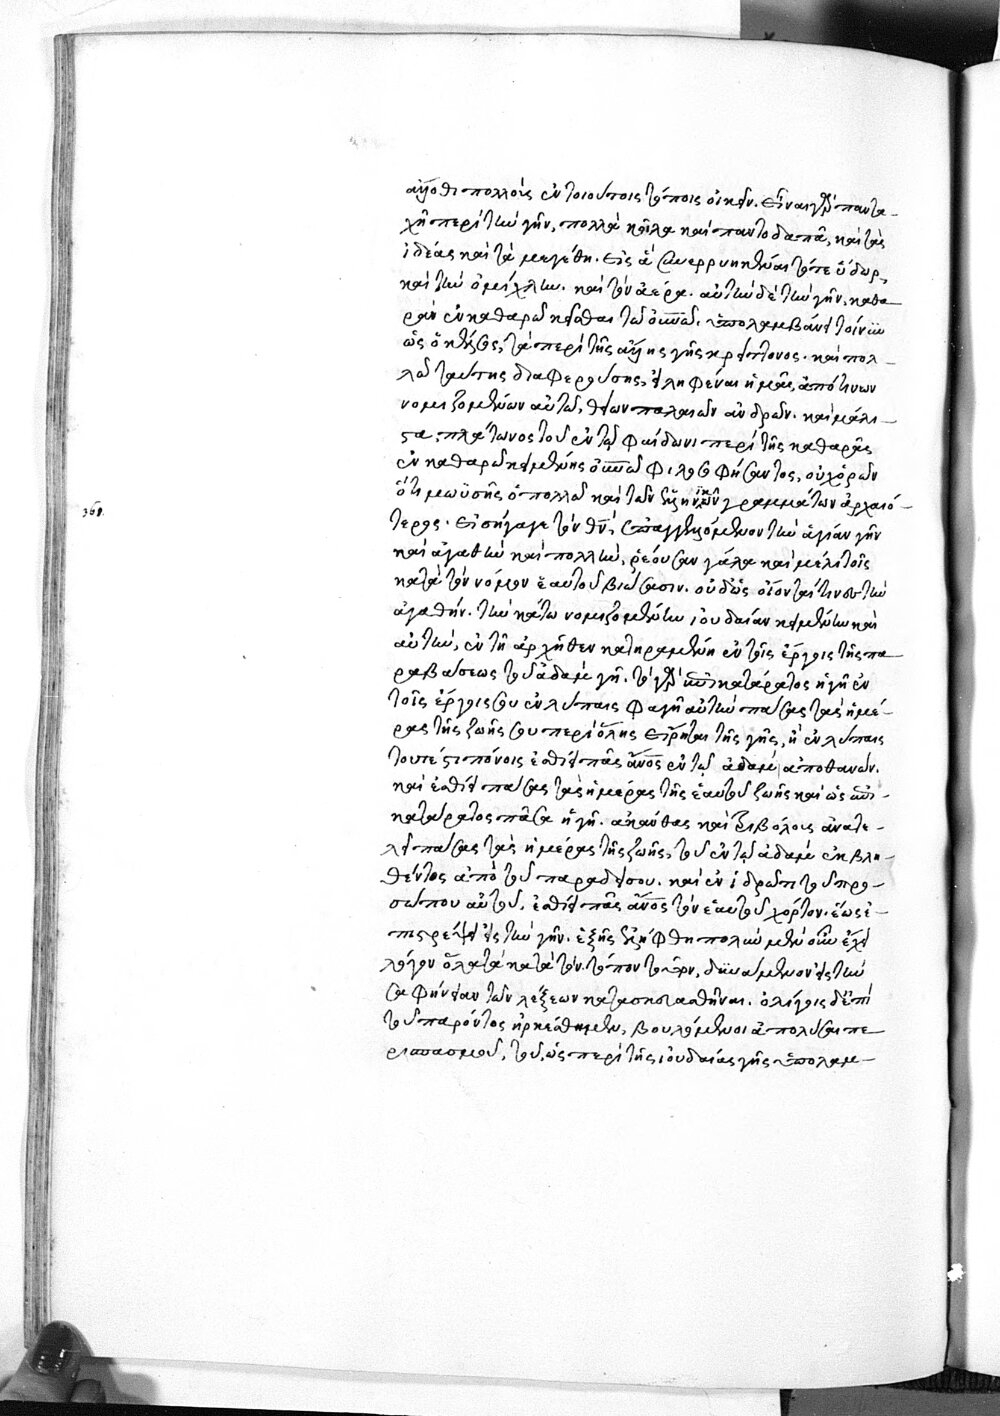 ἄλλοθι πολλοὺς ἐν τοιούτοις τόποις οἰκεῖν. εἶναι γὰρ παντα-
χῆ περὶ τὴν γῆν, πολλὰ κοῖλα καὶ παντοδαπὰ, καὶ τὰς
ἰδέας καὶ τὰ μεγέθη. εἰς ἃ συνερρυηκέναι τό τε ὕδωρ,
καὶ τὴν ὀμίχλην. καὶ τὸν ἀέρα. αὐτὴν δὲ τὴν γῆν, καθα-
ρὰν ἐν καθαρῶ κεῖσθαι τῶ οὐνῶ. ὑπολαμβάνει τοίνυν
ὡς ὁ κέλσος, τὰ περὶ τῆς γῆς κρείττονος. καὶ πολ-
λῶ ταύτης διαφερούσης, εἰληφέναι ἡμᾶς, ἀπό τινων
νομιζομένων αὐτῶ, θείων παλαιῶν ἀνδρῶν. καὶ μάλι-
ςα, πλάτωνος τοῦ ἐν τῶ φαίδωνι περὶ τῆς καθαρᾶς
ἐν καθαρῶ κειμένης οὐνῶ φιλοσοφήσαντος, οὐχ ὁρῶν
ὅτι μωϋσῆς ὁ πολλῶ καὶ τῶν ἑλληνικῶν γραμμάτων ἀρχαιό-
τερος, εἰσήγαγε τὸν θν, ἐπαγγελλόμενον τὴν ἁγίαν γῆν
καὶ ἀγαθὴν καὶ πολλὴν, ῥέουσαν γάλα καὶ μέλι τοῖς
κατὰ τὸν νόμον ἑαυτοῦ βιώσασιν. οὐδ' ὡς οἴονταί τινες τὴν
ἀγαθὴν. τὴν κάτω νομιζομένην ἰουδαίαν κειμένην καὶ
αὐτὴν, ἐν τῆ ἀρχῆθεν κατηραμένη ἐν τοῖς ἔργοις τῆς πα-
ραβάσεως τοῦ ἀδὰμ γῆ. τὸ γὰρ ἐπικατάρατος ἡ γῆ ἐν
τοῖς ἔργοις σου ἐν λύπαις φαγῆ αὐτὴν πάσας τὰς ἡμέ-
ρας τῆς ζωῆς σου περὶ ὅλης εἴρηται τῆς γῆς, ἣν ἐν λύπαις
τουτέςι πόνοις ἐσθίει πᾶς ἄνος ἐν τῶ ἀδὰμ ἀποθανὼν.
καὶ ἐσθίει πάσας τὰς ἡμέρας τῆς ἑαυτοῦ ζωῆς καὶ ὡς ἐπι-
κατάρατος πᾶσα ἡ γῆ. ἀκάνθας καὶ τριβόλους ἀνατε-
λεῖ πάσας τὰς ἡμέρας τῆς ζωῆς, τοῦ ἐν τῶ ἀδὰμ ἐκβλη-
θέντος ἀπὸ τοῦ παραδείσου. καὶ ἐν ἱδρῶτι τοῦ προ-
σώπου αὐτοῦ, ἐσθίει πᾶς ἄνος τὸν ἑαυτοῦ χόρτον. ἕως ἐ-
πιςρέψει εἰς τὴν γῆν. ἐξῆς ἐλήφθη πολὺν μὲν οὖν ἔχει
λόγον ὅλα τὰ κατὰ τὸν τόπον τοῦτον, δυνάμενον εἰς τὴν
σαφήνειαν τῶν λέξεων κατασκευασθῆναι. ὀλίγοις δ' ἐπὶ
τοῦ παρόντος ἠρκέσθημεν, βουλόμενοι ἀπολῦσαι πε-
ρισπασμοῦ, τοῦ, ὡς περὶ τῆς ἰουδαίας γῆς ὑπολαμ-